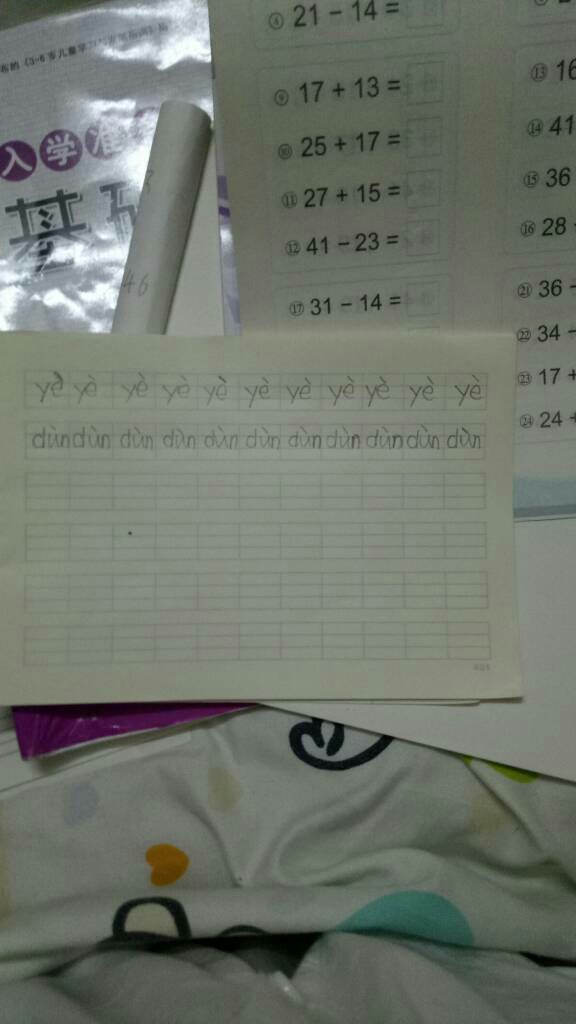 布的《3-6岁儿童学习与发展指南》拓
入学准
基础
46
④ 21 − 14 =
⑨ 17 + 13 =
⑩ 25 + 17 =
⑪ 27 + 15 =
⑫ 41 − 23 =
⑰ 31 − 14 =
⑬ 16
⑭ 41
⑮ 36
⑯ 28
㉑ 36 −
㉒ 34 −
㉓ 17 +
㉔ 24 +
yè yè yè yè yè yè yè yè yè yè yè
dùn dùn dùn dùn dùn dùn dùn dùn dùn dùn dùn